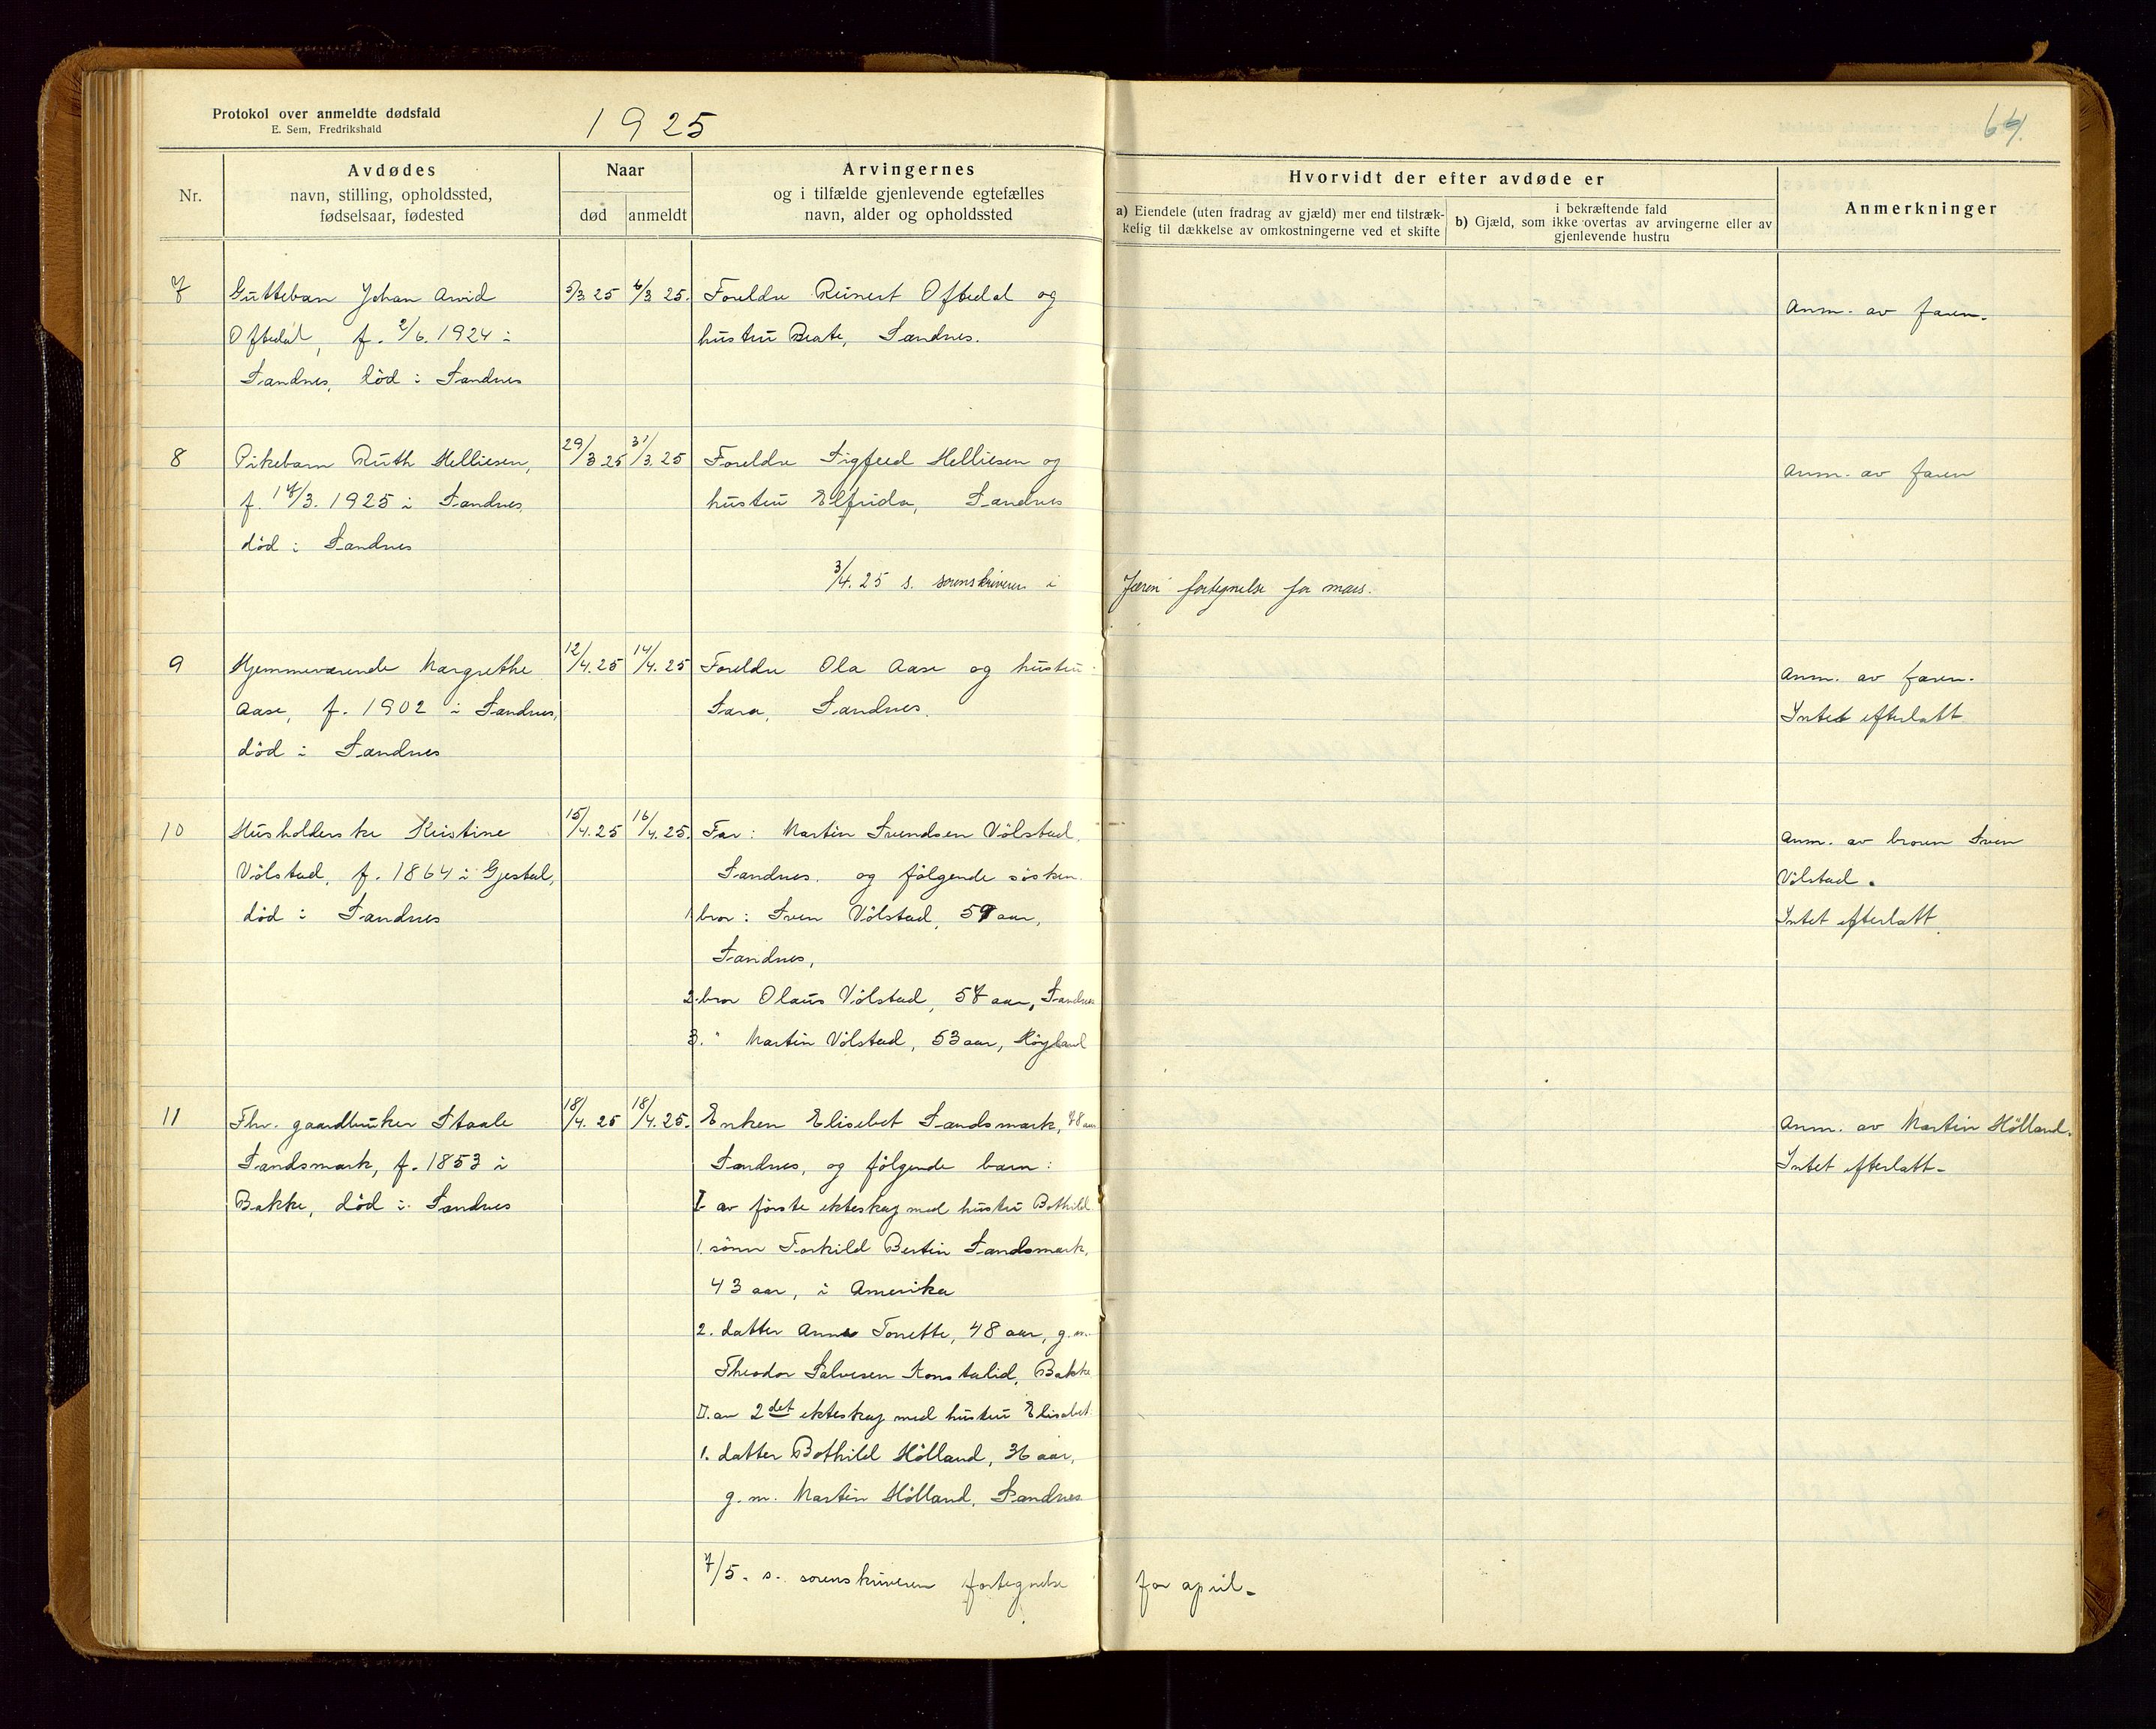 Protokol over anmeldte dødsfald
E. Sem, Fredrikshald
1925
64.
Nr.
Avdødes
navn, stilling, opholdssted,
fødselsaar, fødested
Naar
død
anmeldt
Arvingernes
og i tilfælde gjenlevende egtefælles
navn, alder og opholdssted
Hvorvidt der efter avdøde er
a) Eiendele (uten fradrag av gjæld) mer end tilstræk-
kelig til dækkelse av omkostningerne ved et skifte
i bekræftende fald
b) Gjæld, som ikke overtas av arvingerne eller av
gjenlevende hustru
Anmerkninger
7
Guttebarn Johan Arvid
Oftedal, f. 2/6. 1924 i
Sandnes, död i Sandnes
5/3 25
6/3 25.
Foreldre Reinert Oftedal og
hustru Beate, Sandnes.
Anm. av faren.
8
Pikebarn Ruth Helliesen,
f. 17/3. 1925 i Sandnes,
död i Sandnes
29/3 25
31/3. 25
Foreldre Sigfred Helliesen og
hustru Elfrida, Sandnes
Anm. av faren
3/4. 25 s. sorenskriveren i Jæren fortegnelse for mars.
9
Hjemmeværende Margrethe
Aase, f. 1902 i Sandnes,
död i Sandnes
12/4. 25
14/4. 25
Foreldre Ola Aase og hustru
Sara, Sandnes.
Anm. av faren.
Intet efterlatt
10
Husholderske Kristine
Völstad, f. 1864 i Gjestal,
död i Sandnes
15/4. 25
16/4. 25.
Far: Martin Svendsen Völstad,
Sandnes. og fölgende sösken.
1 bror: Sven Völstad, 59 aar,
Sandnes,
2. bror Olaus Völstad, 57 aar, Sandnes
3. " Martin Völstad, 53 aar, Höyland
Anm. av broren Sven
Völstad.
Intet efterlatt.
11
Fhv. gaardbruker Staale
Sandsmark, f. 1853 i
Bakke, död i Sandnes
18/4. 25
18/4. 25.
Enken Elisebet Sandsmark, 78 aar
Sandnes, og fölgende barn:
I av förste ekteskap med hustru Bothild
1. sönn Torkild Bertin Sandsmark,
43 aar, i Amerika
2. datter Anna Tonette, 48 aar, g. m.
Theodor Salvesen Konstalid, Bakke
II. av 2det ekteskap med hustru Elisabet
1. datter Bothild Hölland, 36 aar,
g. m. Martin Hölland, Sandnes
Anm. av Martin Hölland.
Intet efterlatt.
7/5. s. sorenskriveren fortegnelse for april.